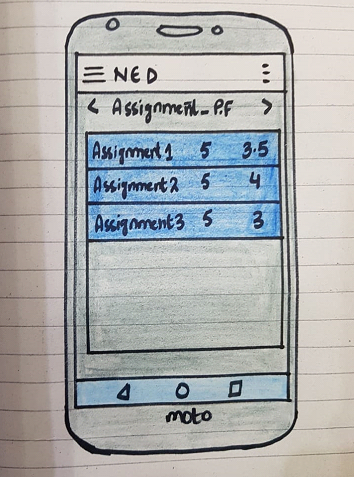 NED
Assignment_P.F
Assignment1 5 3.5
Assignment2 5 4
Assignment3 5 3
moto